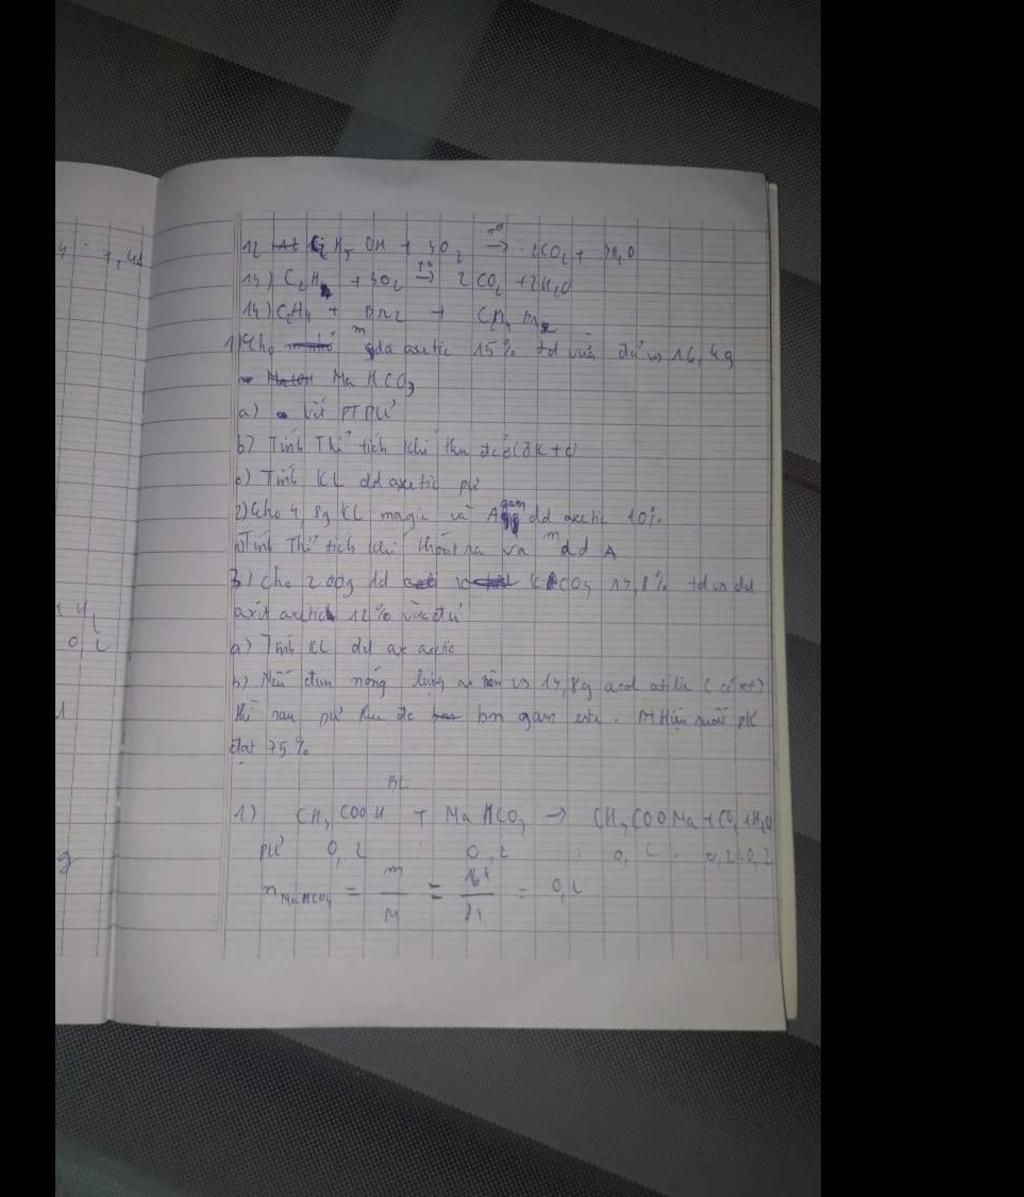 4 = 1,4d
12 C2H5 OH + 3O2 →t° 2CO2 + 3H2O
13) C2H4 + 3O2 →t° 2CO2 + 2H2O
14) C2H4 + Br2 → Br2
1) Cho m g dd axetic 15% td vừa đủ vs 16, g
Na HCO3
a) Viết PTPƯ
b) Tính Thể tích khí thu đc ở (đk + c)
c) Tính KL dd axetic pư
2) Cho 4,8g KL magie và A gam dd axetic 10%
Tính Thể tích khí thoát ra và m dd A
3) Cho 200g dd K CO3 13,8% td vs dd
axit axetic 12% vừa đủ
a) Tính KL dd ax axetic
b) Nếu đun nóng lượng ax trên vs 13,8g
thì sau pư thu đc bn gam este. Hiệu suất pư
đạt 75%
BL
1) CH3COOH + NaHCO3 → CH3COONa + CO2 + H2O
pư 0,2 : 0,2 : 0,2 : 0,2 : 0,2
n NaHCO3 = m/M = = 0,2
4
0,2
1
g